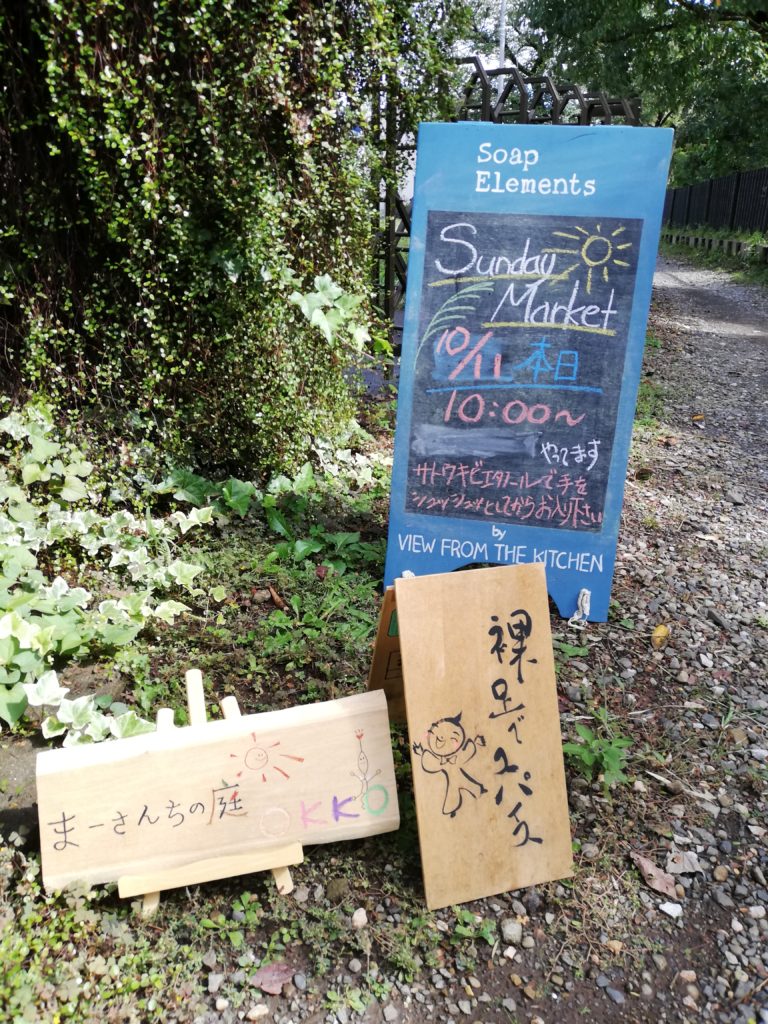 Soap
Elements
Sunday
Market
10/11 本日
10:00〜
やってます
サトウキビエタノールで手を
シュッシュッとしてからお入り下さい
by
VIEW FROM THE KITCHEN
裸足でスパイス
まーさんちの庭
OKKO